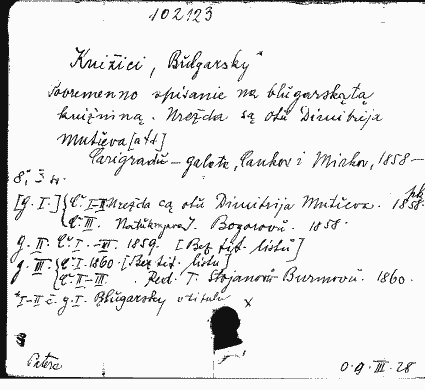 102123
Knižici, Bŭlgarsky*
Sovremenno spisanie na blŭgarskątą
knižniną. Nręžda są otŭ Dimitrija
Mutičva [atd]
Carigradŭ - galota, Cankov i Mirkov, 1858 -
8°, 3 sv.
[g. I.] Č. I-II Nręžda są otŭ Dimitrija Mutieva. 1858.
Č. III. I. Bogorovŭ. 1858.
g. II. Č. I. - VI. 1859. [Bez tit. listŭ]
g. III. Č. I. 1860. [Bez tit. listu]
Č. II-III. Red. T. Stojanovŭ Burmovŭ. 1860.
*I-II č. g. I. Blŭgarsky v titulu
x
O. g. III. 28